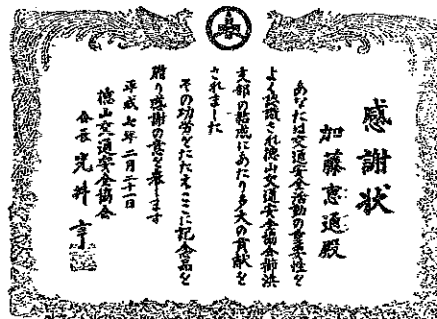 感謝状
加藤恵通殿
あなたは交通安全活動の重要性を
よく認識され徳山交通安全協会櫛浜
支部の結成にあたり多大の貢献を
されました
その功労をたたえここに記念品を
贈り感謝の意を表します
平成七年二月二十一日
徳山交通安全協会
会長 光井亨